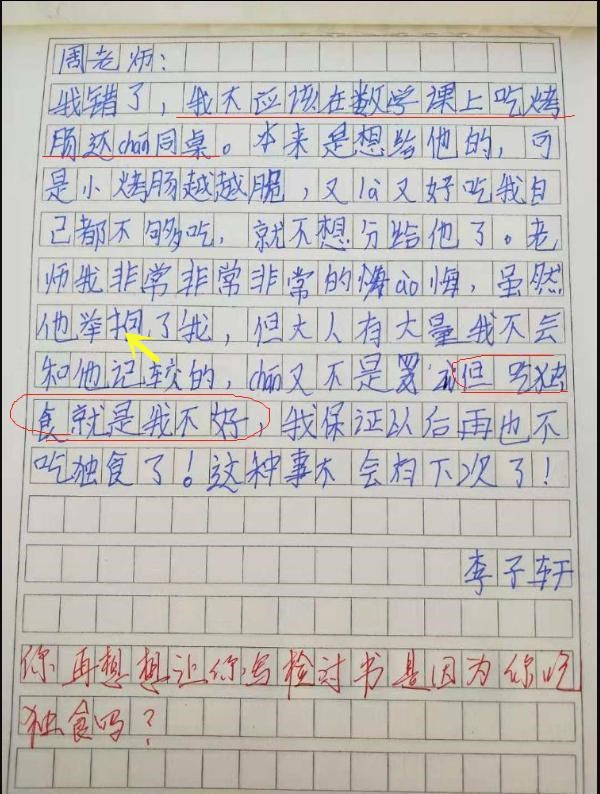 周老师：
我错了，我不应该在数学课上吃烤
肠还chán同桌。本来是想给他的，可
是小烤肠越越脆，又là又好吃我自
己都不够吃，就不想分给他了。老
师我非常非常非常的懊ào悔，虽然
他举抱了我，但大人有大量我不会
和他记较的，chán又不是罪 但吃独
食就是我不好，我保证以后再也不
吃独食了！这种事不会有下次了！
李子轩
你再想想让你写检讨书是因为你吃
独食吗？